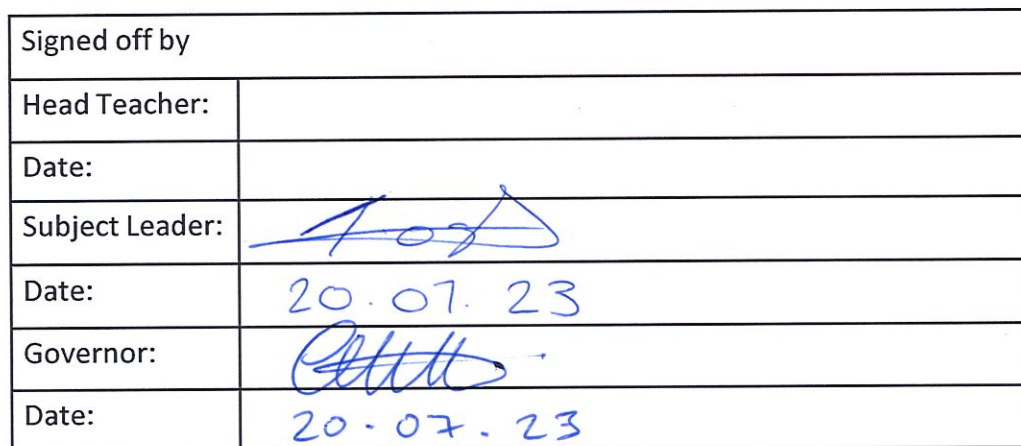 Signed off by
Head Teacher:
Date:
Subject Leader:
Date: 20.07.23
Governor:
Date: 20.07.23